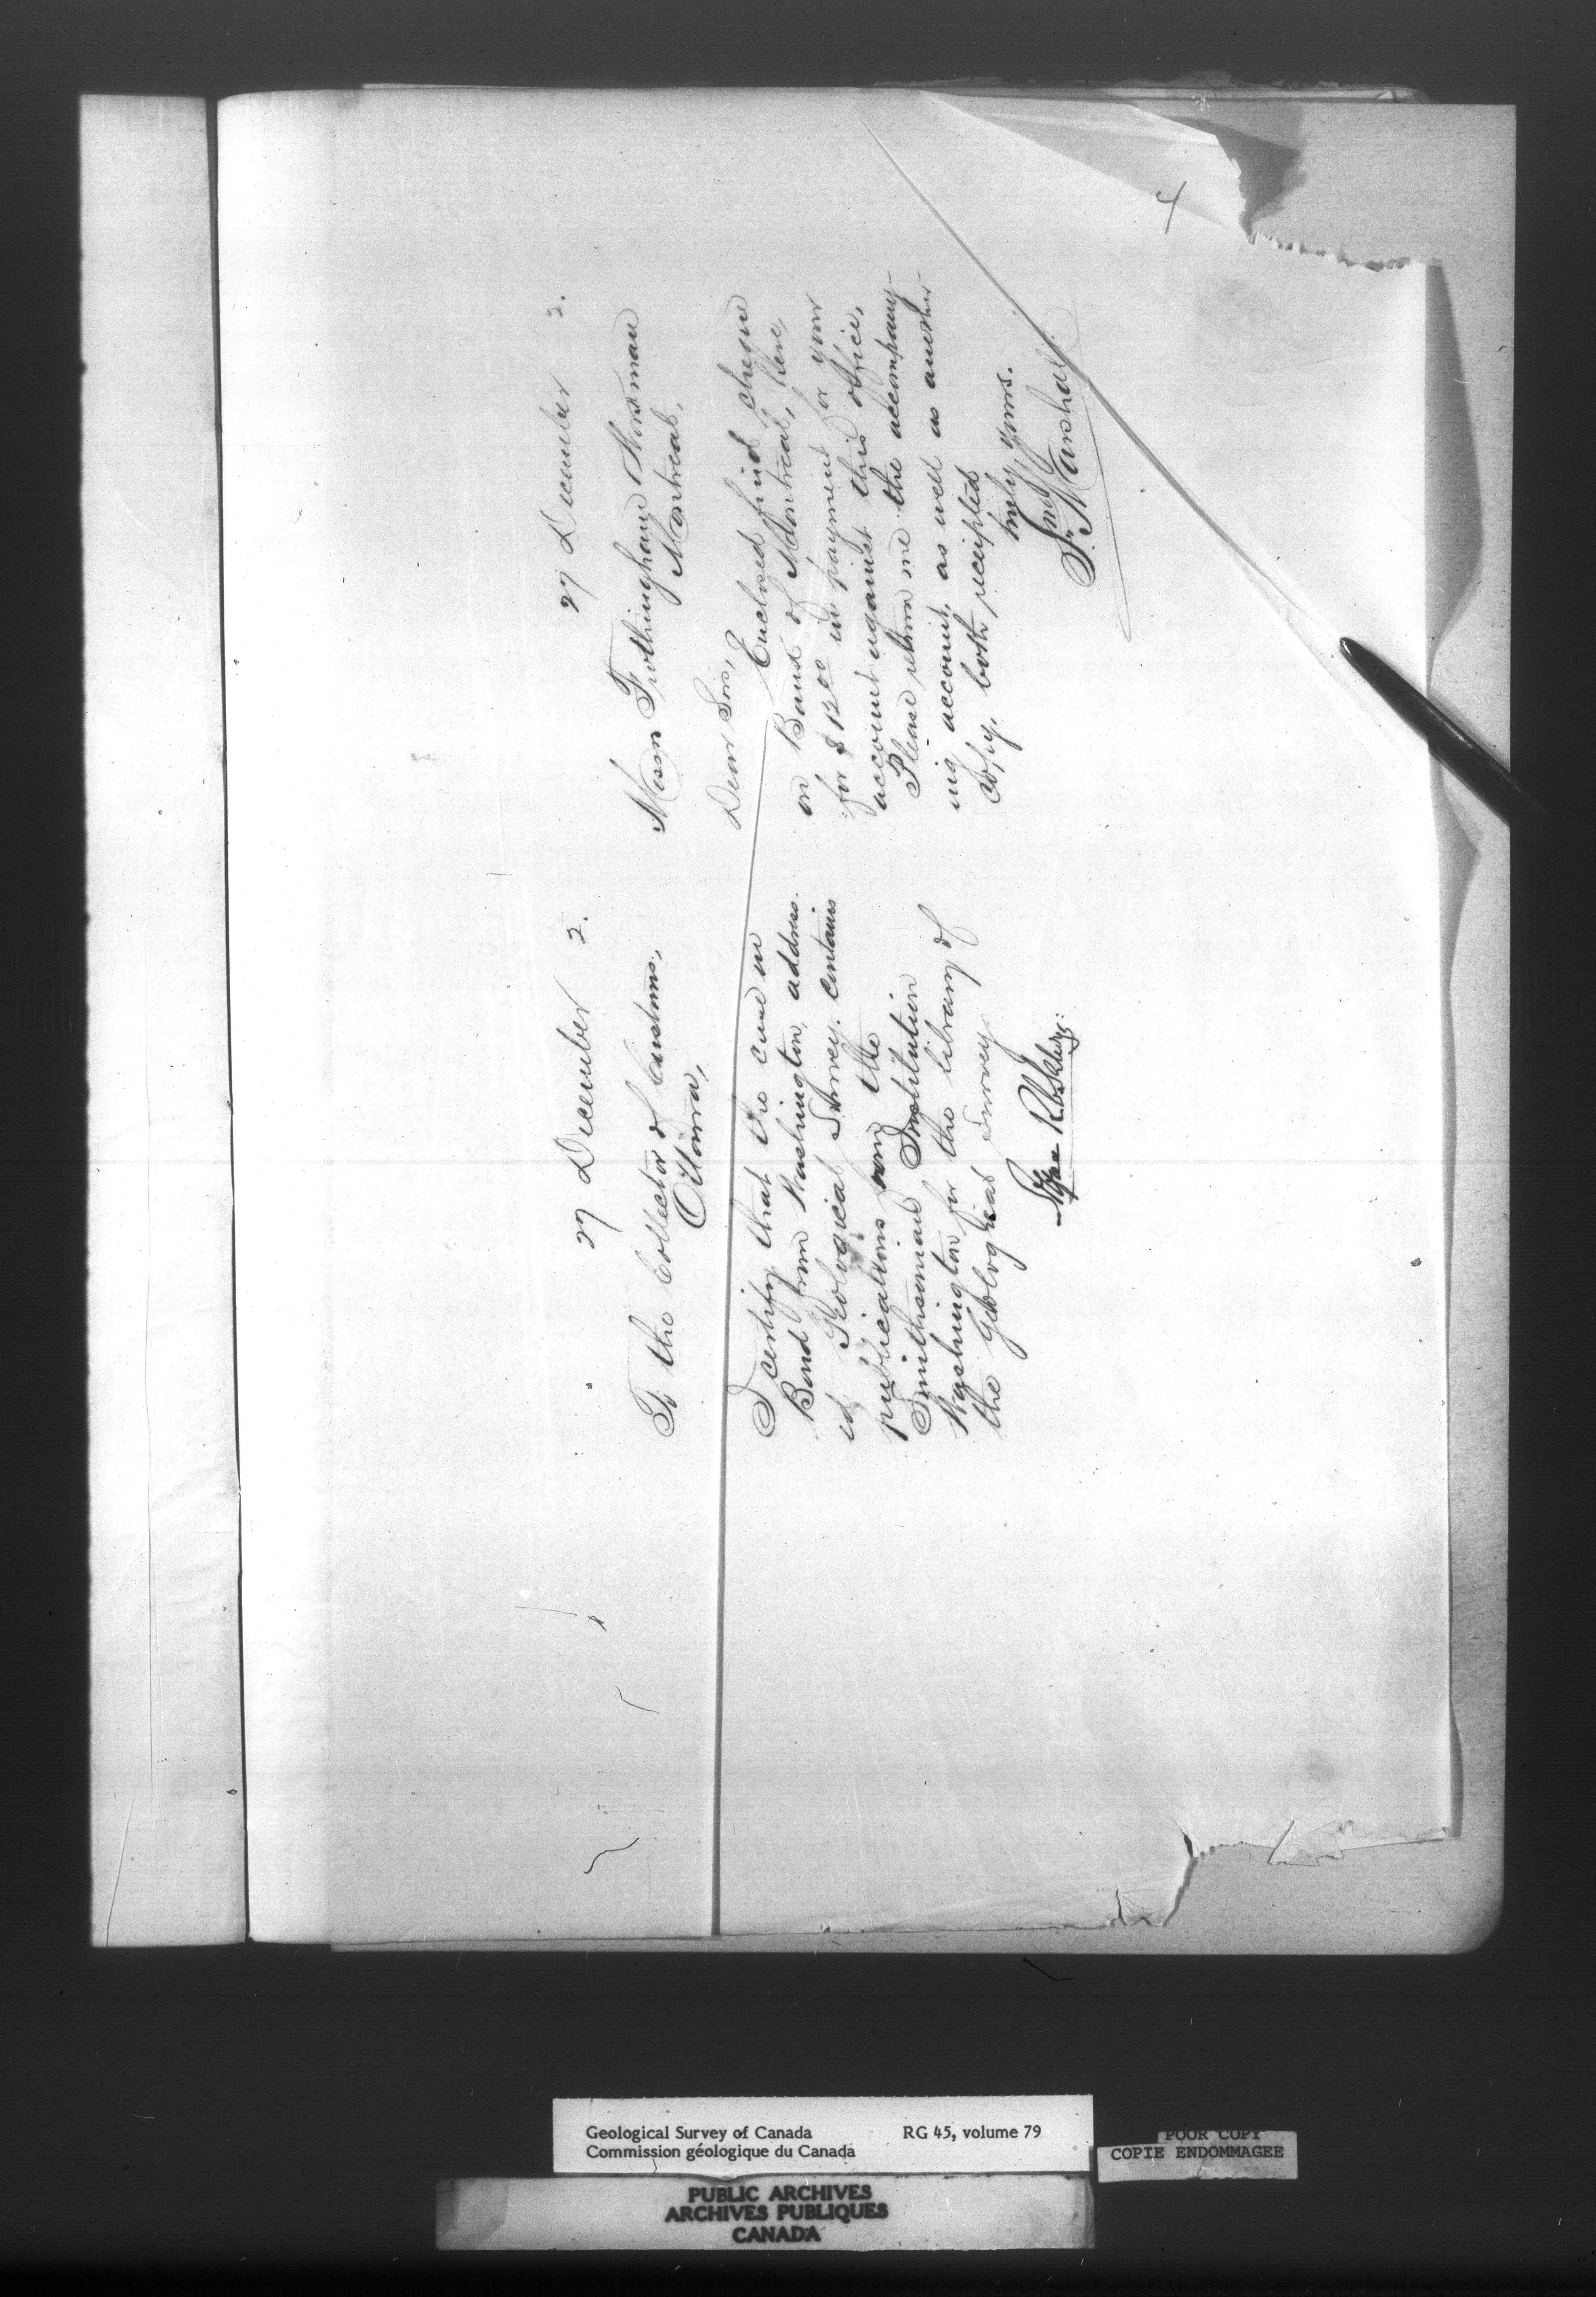 27 December 2.
To the Collector of Customs,
Ottawa,
I certify that the case in
Bond from Washington, address-
ed Geological Survey. contains
publications from the
Smithsonian Institution
Washington for the library of
the Geological Survey
27 December 2.
Messrs Frothingham & Workman
Montreal.
Dear Sirs,
Enclosed find cheque
on Bank of Montreal, here,
for $12.00 in payment for your
account against this office,
Please return me the accompany-
ing account, as well as another
copy, both receipted
truly yours.
Marshall.
4
Geological Survey of Canada RG 45, volume 79
Commission géologique du Canada
POOR COPY
COPIE ENDOMMAGEE
PUBLIC ARCHIVES
ARCHIVES PUBLIQUES
CANADA